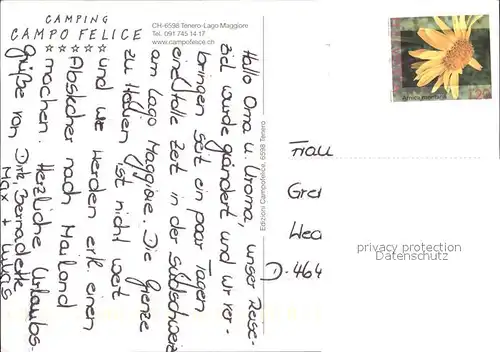 CAMPING
CAMPO FELICE
CH-6598 Tenero-Lago Maggiore
Tel. 091 745 14 17
www.campofelice.ch
Hallo Oma u. Uroma, unser Reise-
ziel wurde geändert und wir ver-
bringen seit ein paar Tagen
eine tolle Zeit in der Südschweiz
am Lago Maggiore. Die Grenze
zu Italien ist nicht weit
und wir werden evtl. einen
Abstecher nach Mailand
machen. Herzliche Urlaubs-
grüße von Dirk, Bernadette
Max + Lukas
Edizioni Campofelice, 6598 Tenero
Frau
Gre
Hea
D-464
privacy protection
Datenschutz